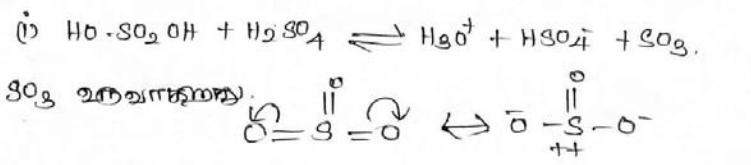 (i) HO·SO₂OH + H₂SO₄ ⇌ H₃O⁺ + HSO₄⁻ + SO₃.
SO₃ உருவாகிறது.
O
||
O = S = O ↔ ⁻O – S – O⁻
O
||
++